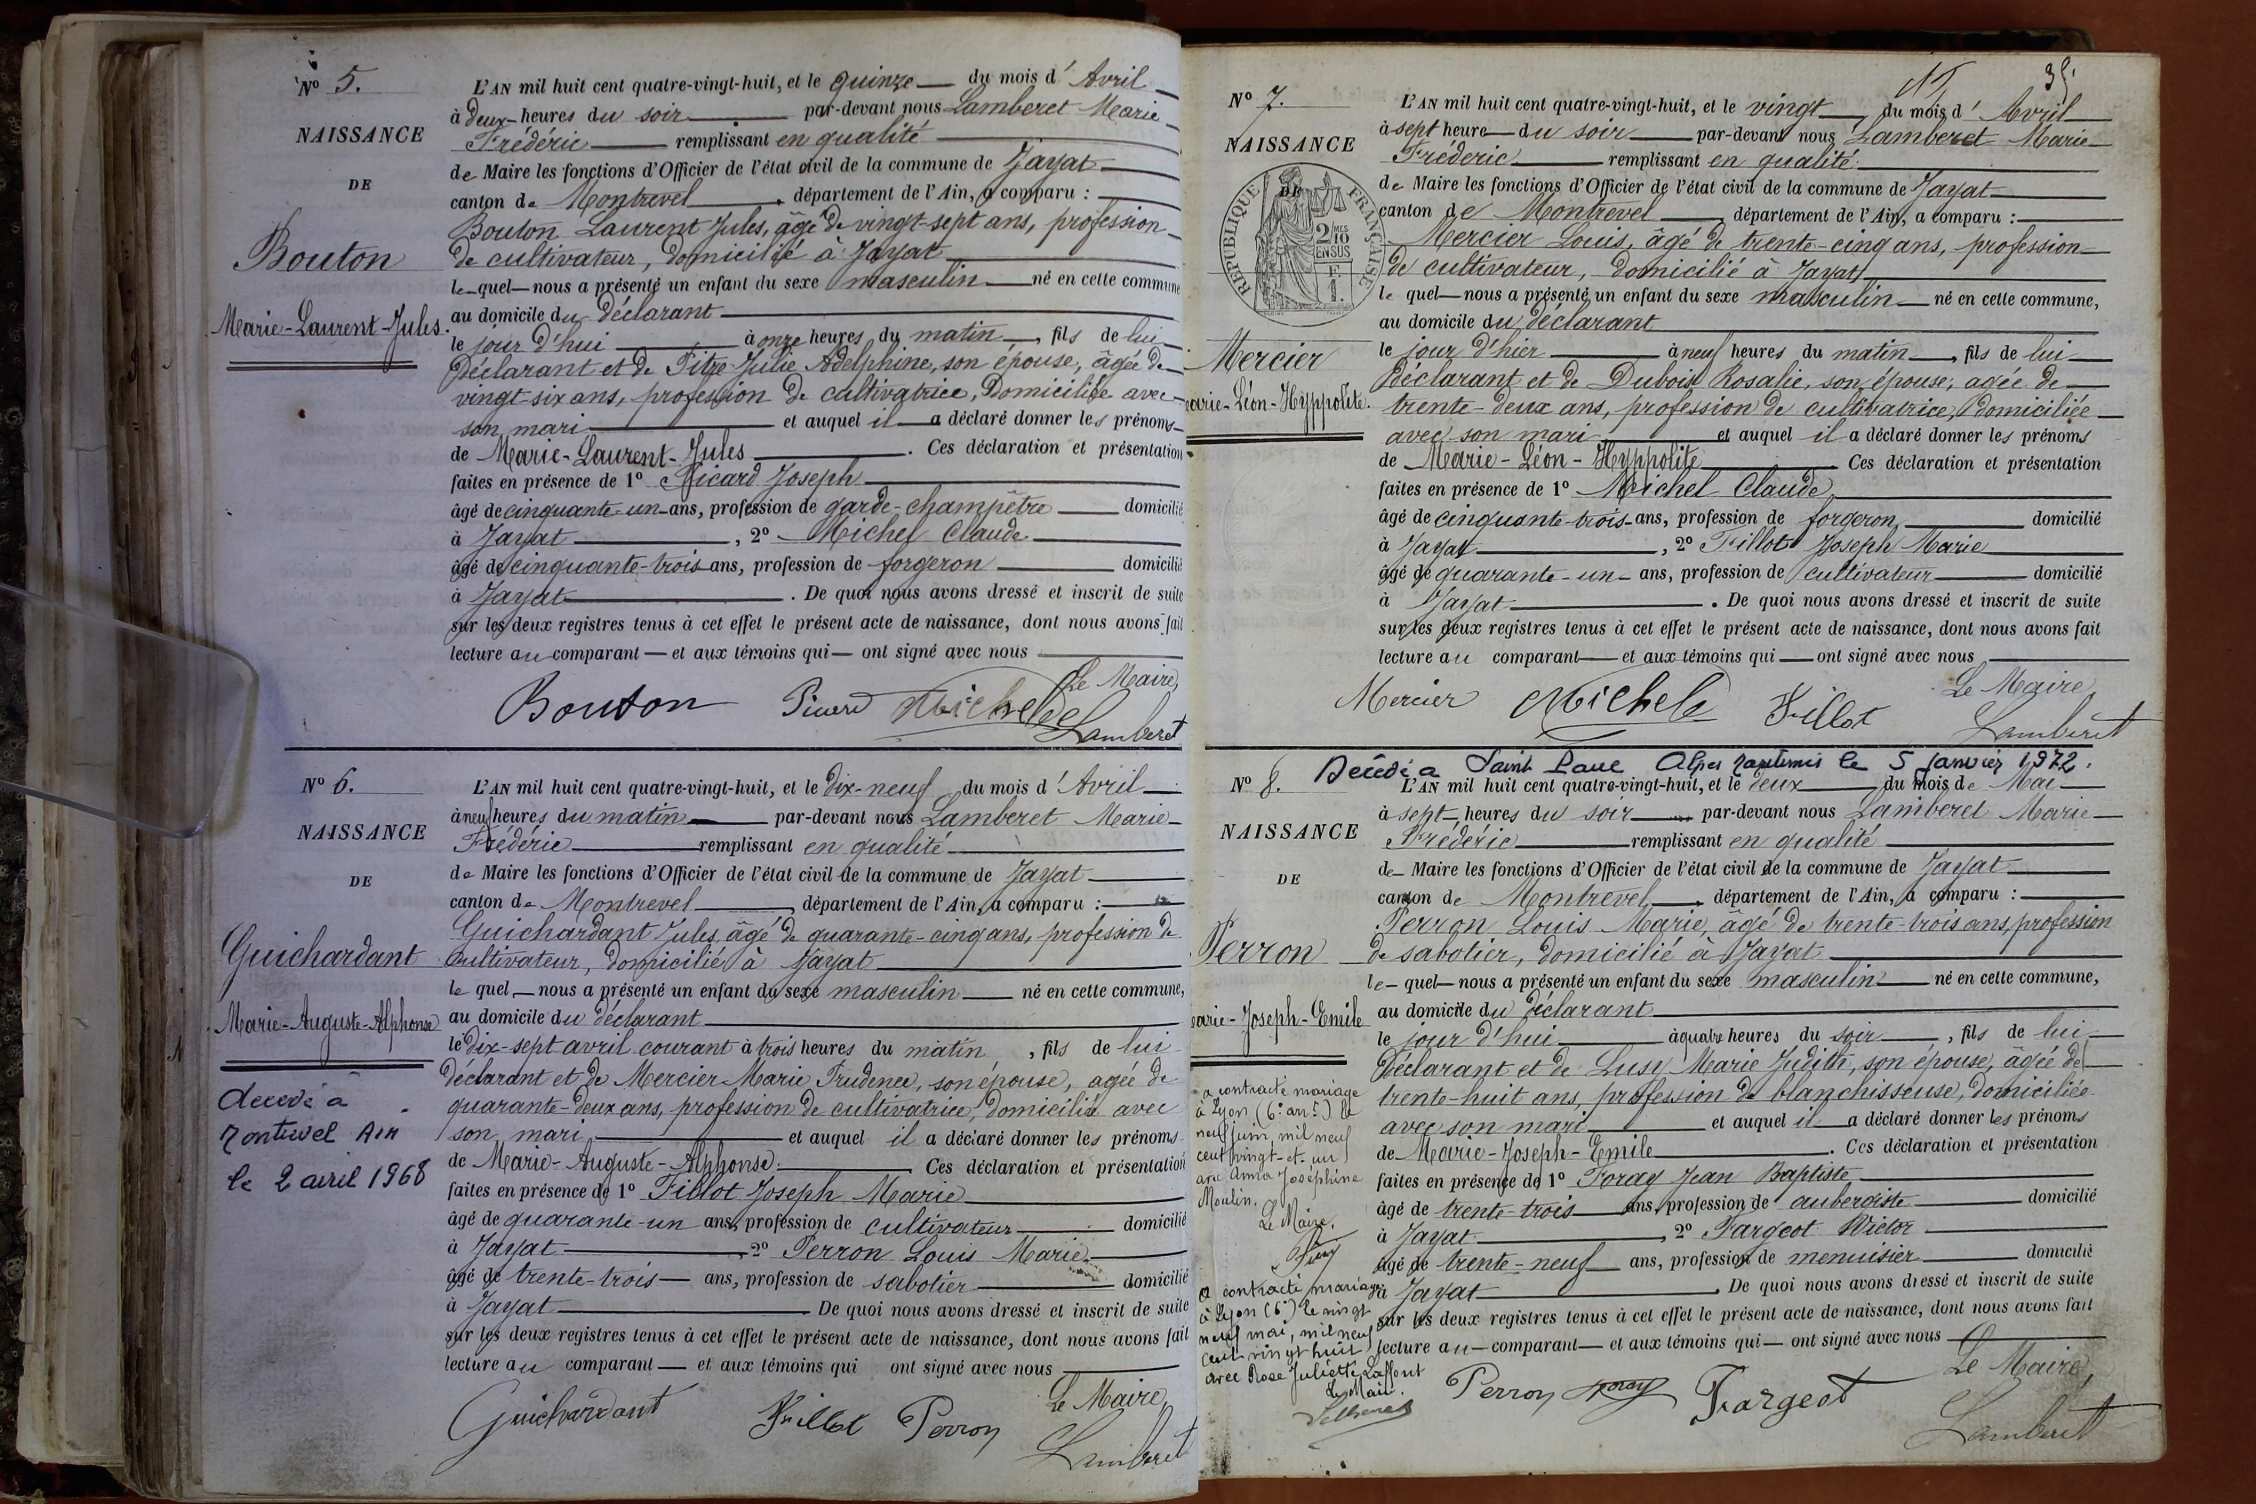 N° 5.
NAISSANCE
DE
Bouton
Marie-Laurent-Jules.
L'AN mil huit cent quatre-vingt-huit, et le quinze du mois d'Avril
à deux heures du soir par-devant nous Lamberet Marie
Frédéric remplissant en qualité
de Maire les fonctions d'Officier de l'état civil de la commune de Jayat
canton de Montrevel, département de l'Ain, a comparu :
Bouton Laurent Jules, âgé de vingt-sept ans, profession
de cultivateur, domicilié à Jayat
le quel nous a présenté un enfant du sexe masculin né en cette commune
au domicile du déclarant
le jour d'hui à onze heures du matin, fils de lui
déclarant et de Pitre Julie Adelphine, son épouse, âgée de
vingt-six ans, profession de cultivatrice, Domiciliée avec
son mari et auquel il a déclaré donner les prénoms
de Marie-Laurent-Jules. Ces déclaration et présentation
faites en présence de 1° Picard Joseph
âgé de cinquante-un ans, profession de garde-champêtre domicilié
à Jayat, 2° Michel Claude
âgé de cinquante-trois ans, profession de forgeron domicilié
à Jayat. De quoi nous avons dressé et inscrit de suite
sur les deux registres tenus à cet effet le présent acte de naissance, dont nous avons fait
lecture au comparant et aux témoins qui ont signé avec nous
Le Maire,
Bouton Picard Michel Lamberet
N° 6.
NAISSANCE
DE
Guichardant
Marie-Auguste-Alphonse
décédé à
Montrevel Ain
le 2 avril 1968
L'AN mil huit cent quatre-vingt-huit, et le dix-neuf du mois d'Avril
à neuf heures du matin par-devant nous Lamberet Marie
Frédéric remplissant en qualité
de Maire les fonctions d'Officier de l'état civil de la commune de Jayat
canton de Montrevel, département de l'Ain, a comparu :
Guichardant Jules, âgé de quarante-cinq ans, profession de
cultivateur, domicilié à Jayat
le quel nous a présenté un enfant du sexe masculin né en cette commune,
au domicile du déclarant
le dix-sept avril courant à trois heures du matin, fils de lui
déclarant et de Mercier Marie Prudence, son épouse, agée de
quarante-deux ans, profession de cultivatrice, domiciliée avec
son mari et auquel il a déclaré donner les prénoms
de Marie-Auguste-Alphonse. Ces déclaration et présentation
faites en présence de 1° Fillot Joseph Marie
âgé de quarante-un ans, profession de cultivateur domicilié
à Jayat 2° Perron Louis Marie
âgé de trente-trois ans, profession de sabotier domicilié
à Jayat. De quoi nous avons dressé et inscrit de suite
sur les deux registres tenus à cet effet le présent acte de naissance, dont nous avons fait
lecture au comparant et aux témoins qui ont signé avec nous
Le Maire,
Guichardant Fillot Perron Lamberet
35
N° 7.
NAISSANCE
DE
RÉPUBLIQUE FRANÇAISE
2 MES
10
EN SUS
F.
1.
Mercier
Marie-Léon-Hyppolite.
L'AN mil huit cent quatre-vingt-huit, et le vingt du mois d'Avril
à sept heure du soir par-devant nous Lamberet Marie
Fréderic remplissant en qualité
de Maire les fonctions d'Officier de l'état civil de la commune de Jayat
canton de Montrevel, département de l'Ain, a comparu :
Mercier Louis, âgé de trente-cinq ans, profession
de cultivateur, domicilié à Jayat
le quel nous a présenté un enfant du sexe masculin né en cette commune,
au domicile du déclarant
le jour d'hier à neuf heures du matin, fils de lui
déclarant et de Dubois Rosalie, son épouse, agée de
trente-deux ans, profession de cultivatrice, domiciliée
avec son mari et auquel il a déclaré donner les prénoms
de Marie-Léon-Hyppolite Ces déclaration et présentation
faites en présence de 1° Michel Claude
âgé de cinquante-trois ans, profession de forgeron, domicilié
à Jayat, 2° Fillot Joseph Marie
âgé de quarante-un ans, profession de cultivateur domicilié
à Jayat. De quoi nous avons dressé et inscrit de suite
sur les deux registres tenus à cet effet le présent acte de naissance, dont nous avons fait
lecture au comparant et aux témoins qui ont signé avec nous
Le Maire,
Mercier Michel Fillot Lamberet
Décédé à Saint Paul Alpes maritimes le 5 janvier 1972.
N° 8.
NAISSANCE
DE
Perron
Marie-Joseph-Emile
a contracté mariage
à Lyon (6e arrt) le
neuf juin mil neuf
cent vingt-et-un
avec Anna Joséphine
Moulin.
Le Maire,
a contracté mariage
à Lyon (6e) le vingt
neuf mai, mil neuf
cent vingt huit
avec Rose Juliette Laffont
Le Maire.
L'AN mil huit cent quatre-vingt-huit, et le deux du mois de Mai
à sept heures du soir par-devant nous Lamberet Marie
Frédéric remplissant en qualité
de Maire les fonctions d'Officier de l'état civil de la commune de Jayat
canton de Montrevel, département de l'Ain, a comparu :
Perron Louis Marie, âgé de trente-trois ans, profession
de sabotier, domicilié à Jayat
le quel nous a présenté un enfant du sexe masculin né en cette commune,
au domicile du déclarant
le jour d'hui à quatre heures du soir, fils de lui
Déclarant et de Lusy Marie Judith, son épouse, âgée de
trente-huit ans, profession de blanchisseuse, domiciliée
avec son mari et auquel il a déclaré donner les prénoms
de Marie-Joseph-Emile. Ces déclaration et présentation
faites en présence de 1° Foray Jean Baptiste
âgé de trente-trois ans, profession de aubergiste domicilié
à Jayat, 2° Fargeot Victor
âgé de trente-neuf ans, profession de menuisier domicilié
à Jayat. De quoi nous avons dressé et inscrit de suite
sur les deux registres tenus à cet effet le présent acte de naissance, dont nous avons fait
lecture au comparant et aux témoins qui ont signé avec nous
Le Maire,
Perron Foray Fargeot Lamberet